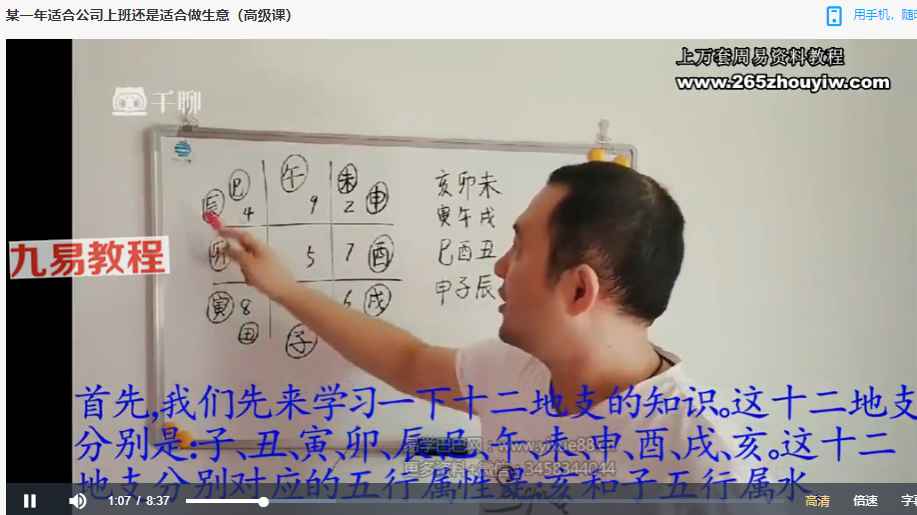 某一年适合公司上班还是适合做生意（高级课）
用手机，随时
上万套周易资料教程
www.265zhouyiw.com
千聊
巳 午 未 申
辰 4 9 2
亥卯未
寅午戌
巳酉丑
申子辰
卯 5 7 酉
寅 8 6 戌
丑 子
九易教程
首先,我们先来学习一下十二地支的知识。这十二地支
分别是:子、丑、寅、卯、辰、巳、午、未、申、酉、戌、亥。这十二
地支分别对应的五行属性是:亥和子五行属水
1:07 / 8:37
高清
倍速